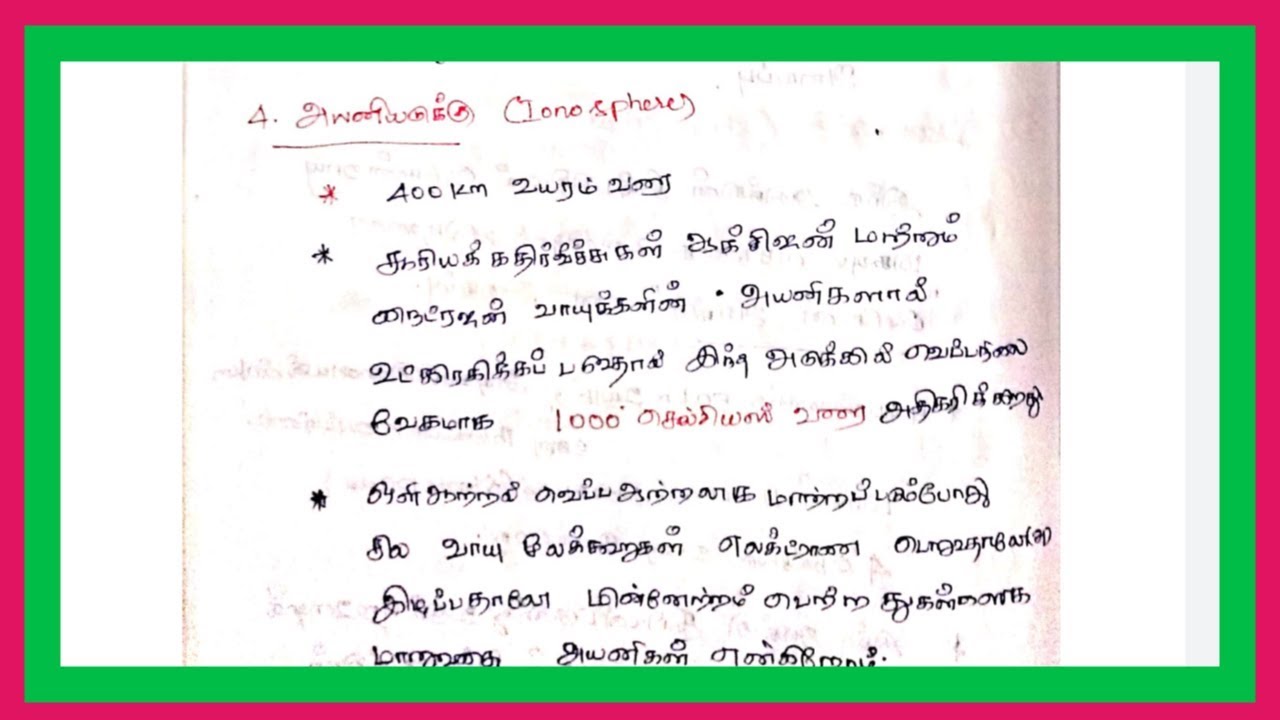 4. அயனியடுக்கு (Ionosphere)
* 400 Km உயரம் வரை
* சூரியக் கதிர்வீச்சுகள் ஆக்சிஷன் மற்றும்
நைட்ரஷன் வாயுக்களின் அயனிகளால்
உட்கிரகிக்கப் படுவதால் இந்த அடுக்கில் வெப்பநிலை
வேகமாக 1000° செல்சியஸ் வரை அதிகரிக்கிறது
* ஒளி ஆற்றல் வெப்ப ஆற்றலாக மாற்றப்படும்போது
சில வாயு லேக்கூறுகள் எலக்ட்ரானை பெறுவதாலோ (அ)
இடிப்பதாலோ மின்னேற்றம் பெற்ற துகள்ளைக
மாறுவதை அயனிகள் என்கிறோம்.